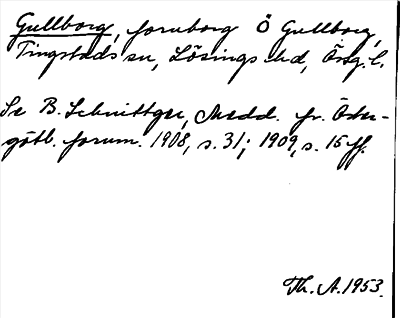 Gullborg, fornborg Ö Gullborg,
Tingstads sn, Lösings hd, Ösg. l.
Se B. Schnittger, Medd. fr. Öster-
götl. fornm. 1908, s. 31; 1909, s. 15 ff.
Th. A. 1953.